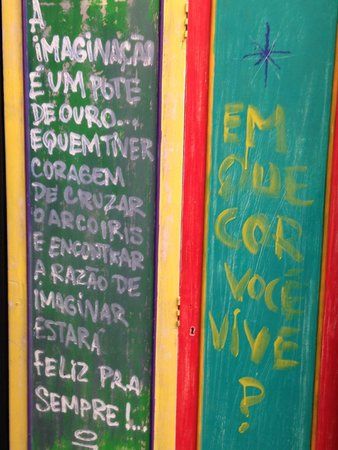 A
IMAGINAÇÃO
É UM POTE
DE OURO...
E QUEM TIVER
CORAGEM
DE CRUZAR
O ARCO ÍRIS
E ENCONTRAR
A RAZÃO DE
IMAGINAR
ESTARÁ
FELIZ PRA
SEMPRE!...
EM
QUE
COR
VOCÊ
VIVE
?